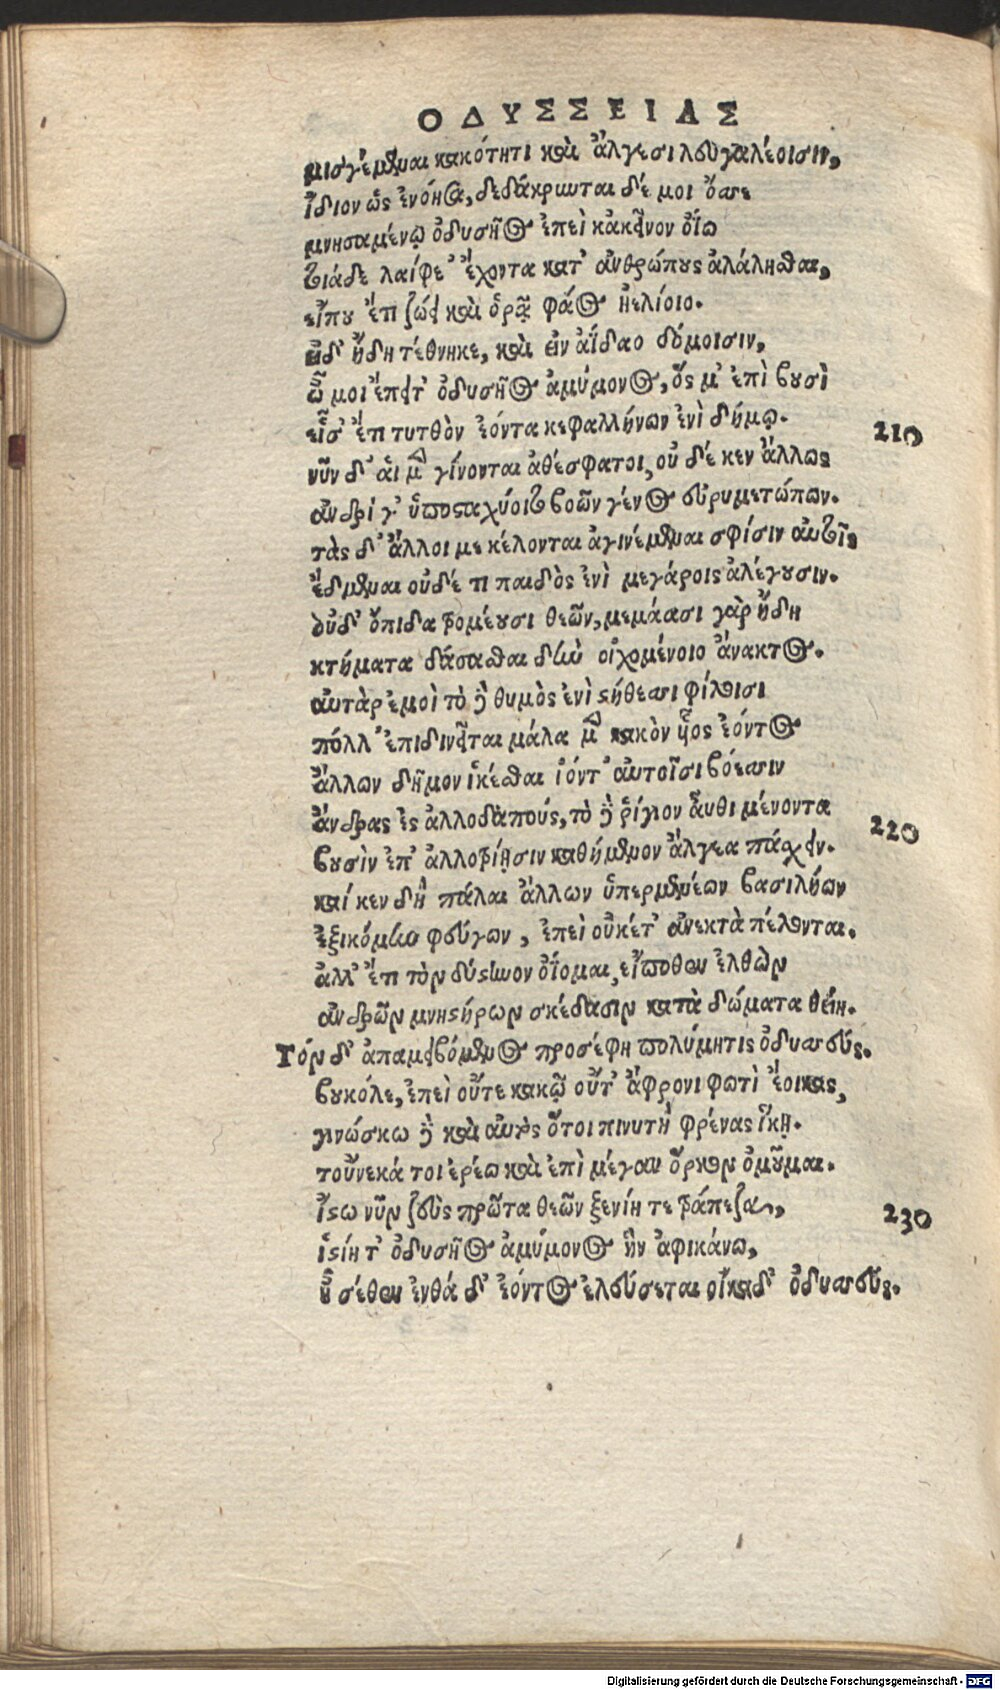 ΟΔΥΣΣΕΙΑΣ
μισγέμεναι κακότητι καὶ ἄλγεσι λευγαλέοισιν,
ἴδιον ὡς ἐνόησα, δεδάκρωται δέ μοι ὄσσε
μνησαμένῳ ὀδυσῆος ἐπεὶ κἀκεῖνον ὀΐω
τοιάδε λαίφε᾽ ἔχοντα κατ᾽ ἀνθρώπους ἀλάλησθαι,
εἴπου ἔτι ζώει καὶ ὁρᾷ φάος ἠελίοιο.
εἰδ᾽ ἤδη τέθνηκε, καὶ εἰν ἀΐδαο δόμοισιν,
ὤ μοι ἔπειτ᾽ ὀδυσῆος ἀμύμονος, ὅς μ᾽ ἐπὶ βουσὶ
εἷσ᾽ ἔτι τυτθὸν ἐόντα κεφαλλήνων ἐνὶ δήμῳ.
210
νῦν δ᾽ αἱ μὲν γίνονται ἀθέσφατοι, οὐ δέ κεν ἄλλως
ἀνδρί γ᾽ ὑποσταχύοιτο βοῶν γένος εὐρυμετώπων.
τὰς δ᾽ ἄλλοι με κέλονται ἀγινέμεναι σφίσιν αὐτοῖς
ἔδμεναι οὐδέ τι παιδὸς ἐνὶ μεγάροις ἀλέγουσιν.
οὐδ᾽ ὄπιδα τρομέουσι θεῶν, μεμάασι γὰρ ἤδη
κτήματα δάσασθαι δὴν οἰχομένοιο ἄνακτος.
αὐτὰρ ἐμοὶ τὸ δὲ θυμὸς ἐνὶ στήθεσσι φίλοισι
πόλλ᾽ ἐπιδινεῖται μάλα μὲν κακὸν υἷος ἐόντος
ἄλλων δῆμον ἱκέσθαι ἰόντ᾽ αὐτοῖσι βόεσσιν
ἄνδρας ἐς ἀλλοδαπούς, τὸ δὲ ῥίγιον αὖθι μένοντα
220
βουσὶν ἐπ᾽ ἀλλοτρίῃσιν καθήμενον ἄλγεα πάσχειν.
καί κεν δὴ πάλαι ἄλλων ὑπερμενέων βασιλήων
ἐξικόμην φεύγων, ἐπεὶ οὐκέτ᾽ ἀνεκτὰ πέλονται.
ἀλλ᾽ ἔτι τὸν δύστηνον ὀΐομαι, εἴποθεν ἐλθὼν
ἀνδρῶν μνηστήρων σκέδασιν κατὰ δώματα θείη.
Τόν δ᾽ ἀπαμειβόμενος προσέφη πολύμητις ὀδυσσεύς.
βουκόλε, ἐπεὶ οὔτε κακῷ οὔτ᾽ ἄφρονι φωτὶ ἔοικας,
γινώσκω δὲ καὶ αὐτὸς ὅτοι πινυτὴ φρένας ἵκῃ.
τοὔνεκά τοι ἐρέω καὶ ἐπὶ μέγαν ὅρκον ὀμοῦμαι.
ἴστω νῦν ζεὺς πρῶτα θεῶν ξενίη τε τράπεζα,
230
ἱστίη τ᾽ ὀδυσῆος ἀμύμονος ἣν ἀφικάνω,
ἦ σέθεν ἐνθά δ᾽ ἐόντος ἐλεύσεται οἴκαδ᾽ ὀδυσσεύς.
Digitalisierung gefördert durch die Deutsche Forschungsgemeinschaft - DFG